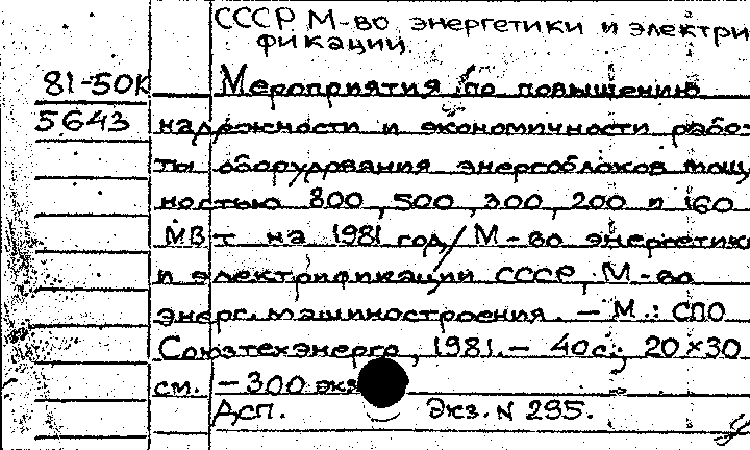 СССР М-во энергетики и электри
фикации.
81-50К Мероприятия по повышению
5643 надежности и экономичности рабо-
ты оборудования энергоблоков мощ
ностью 800, 500, 300, 200 и 160
МВт на 1981 год/ М-во энергетики
и электрификации СССР, М-во
энерг. машиностроения. – М.: СПО
Союзтехэнерго, 1981. – 40с.; 20×30
см. – 300 экз
Дсп. Экз. N 295.